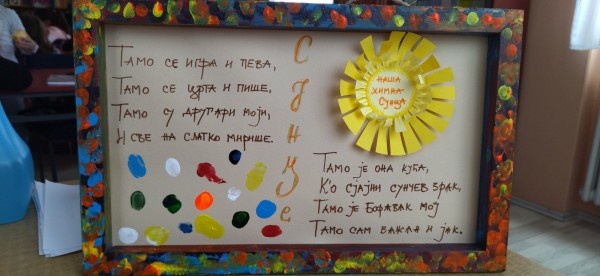 Тамо се игра и пева,
Тамо се црта и пише,
Тамо су другари моји,
И све на слатко мирише.
Сунце
наша
химна-
Сунца
Тамо је она кућа,
Ко сјајни сунчев зрак,
Тамо је боравак мој
Тамо сам важан и јак.